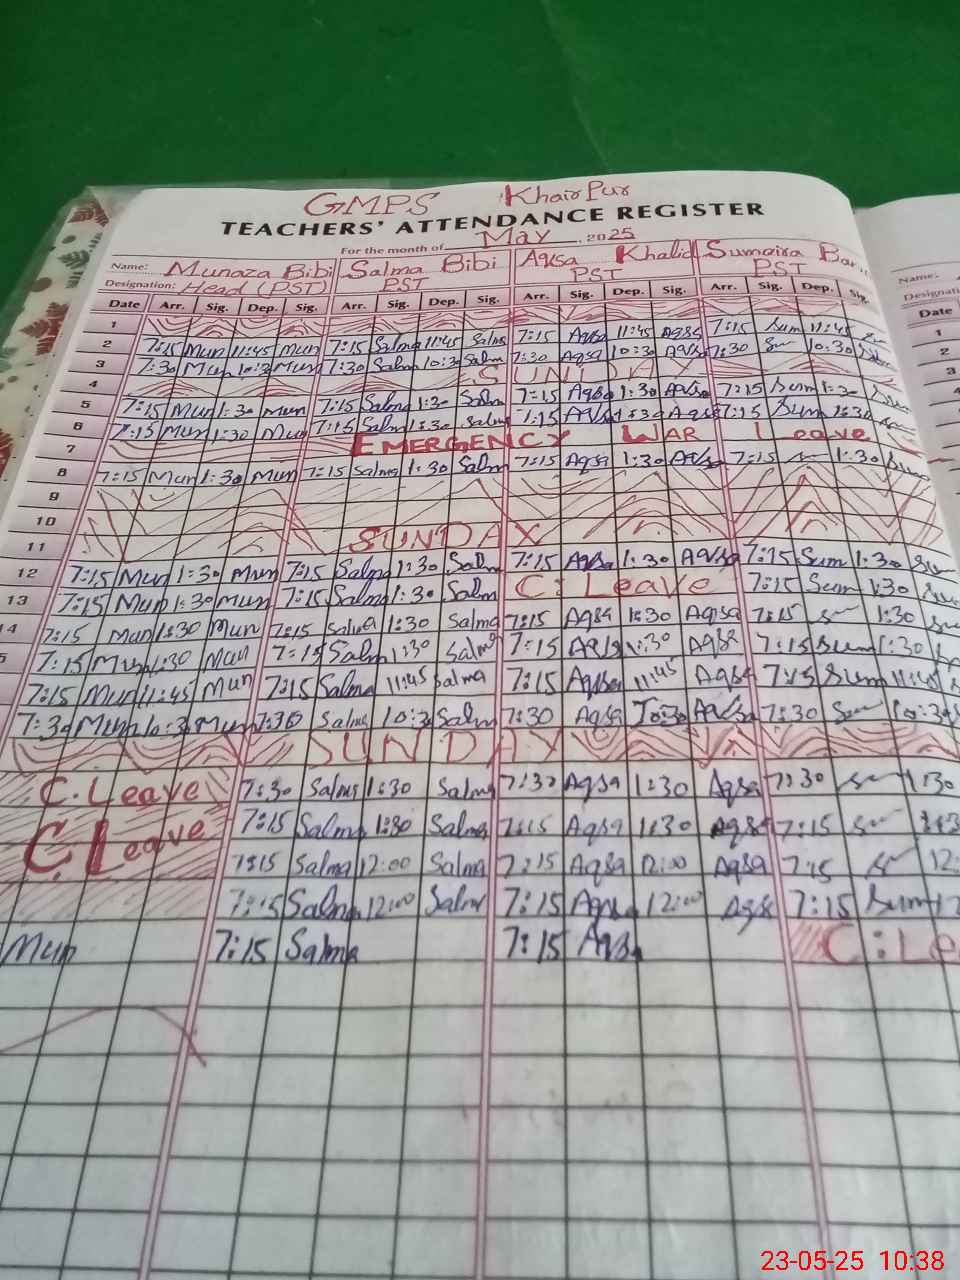 GMPS Khair Pur
TEACHERS' ATTENDANCE REGISTER
For the month of May, 2025
Name: Munaza Bibi Salma Bibi Aqsa Khalid Sumaira Name:
Designation: Head (PST) PST PST PST
Date Arr. Sig. Dep. Sig. Arr. Sig. Dep. Sig. Arr. Sig. Dep. Sig. Arr. Sig. Dep. Sig. Date
1 1
2 7:15 Mun 11:45 Mun 7:15 Salma 11:45 Salma 7:15 Aqsa 11:45 Aqsa 7:15 Sum 11:45 2
3 7:30 Mun 10:30 Mun 7:30 Salma 10:30 Salm 7:30 Aqsa 10:30 Aqsa 7:30 10:30 3
4 SUNDAY 4
5 7:15 Mun 1:30 Mun 7:15 Salma 1:30 Salma 7:15 Aqsa 1:30 Aqsa 7:15 Sum 1:30 5
6 7:15 Mun 1:30 Mun 7:15 Salma 1:30 Salma 7:15 Aqsa 1:30 Aqsa 7:15 Sum 1:30
7 EMERGENCY WAR Leave
8 7:15 Mun 1:30 Mun 7:15 Salma 1:30 Salm 7:15 Aqsa 1:30 Aqsa 7:15 1:30 Sum
9
10
11 SUNDAY
12 7:15 Mun 1:30 Mun 7:15 Salma 1:30 Salm 7:15 Aqsa 1:30 Aqsa 7:15 Sum 1:30
13 7:15 Mun 1:30 Mun 7:15 Salma 1:30 Salm C: Leave 7:15 Sum 1:30
14 7:15 Mun 1:30 Mun 7:15 Salma 1:30 Salma 7:15 Aqsa 1:30 Aqsa 7:15 1:30
5 7:15 Mun 1:30 Mun 7:15 Salm 1:30 Salma 7:15 Aqsa 1:30 Aqsa 7:15 Sum 1:30
7:15 Mun 11:45 Mun 7:15 Salma 11:45 Salma 7:15 Aqsa 11:45 Aqsa 7:15 Sum 11:45
7:30 Mun 10:30 Mun 7:30 Salma 10:30 Salm 7:30 Aqsa 10:30 Aqsa 7:30 10:30
SUNDAY
C. Leave 7:30 Salma 1:30 Salma 7:30 Aqsa 1:30 Aqsa 7:30 1:30
C. Leave 7:15 Salma 1:30 Salma 7:15 Aqsa 1:30 Aqsa 7:15
7:15 Salma 12:00 Salma 7:15 Aqsa 12:00 Aqsa 7:15 12:
7:15 Salma 12:00 Salma 7:15 Aqsa 12:00 Aqsa 7:15 Sum
Mun 7:15 Salma 7:15 Aqsa C: Le
23-05-25 10:38